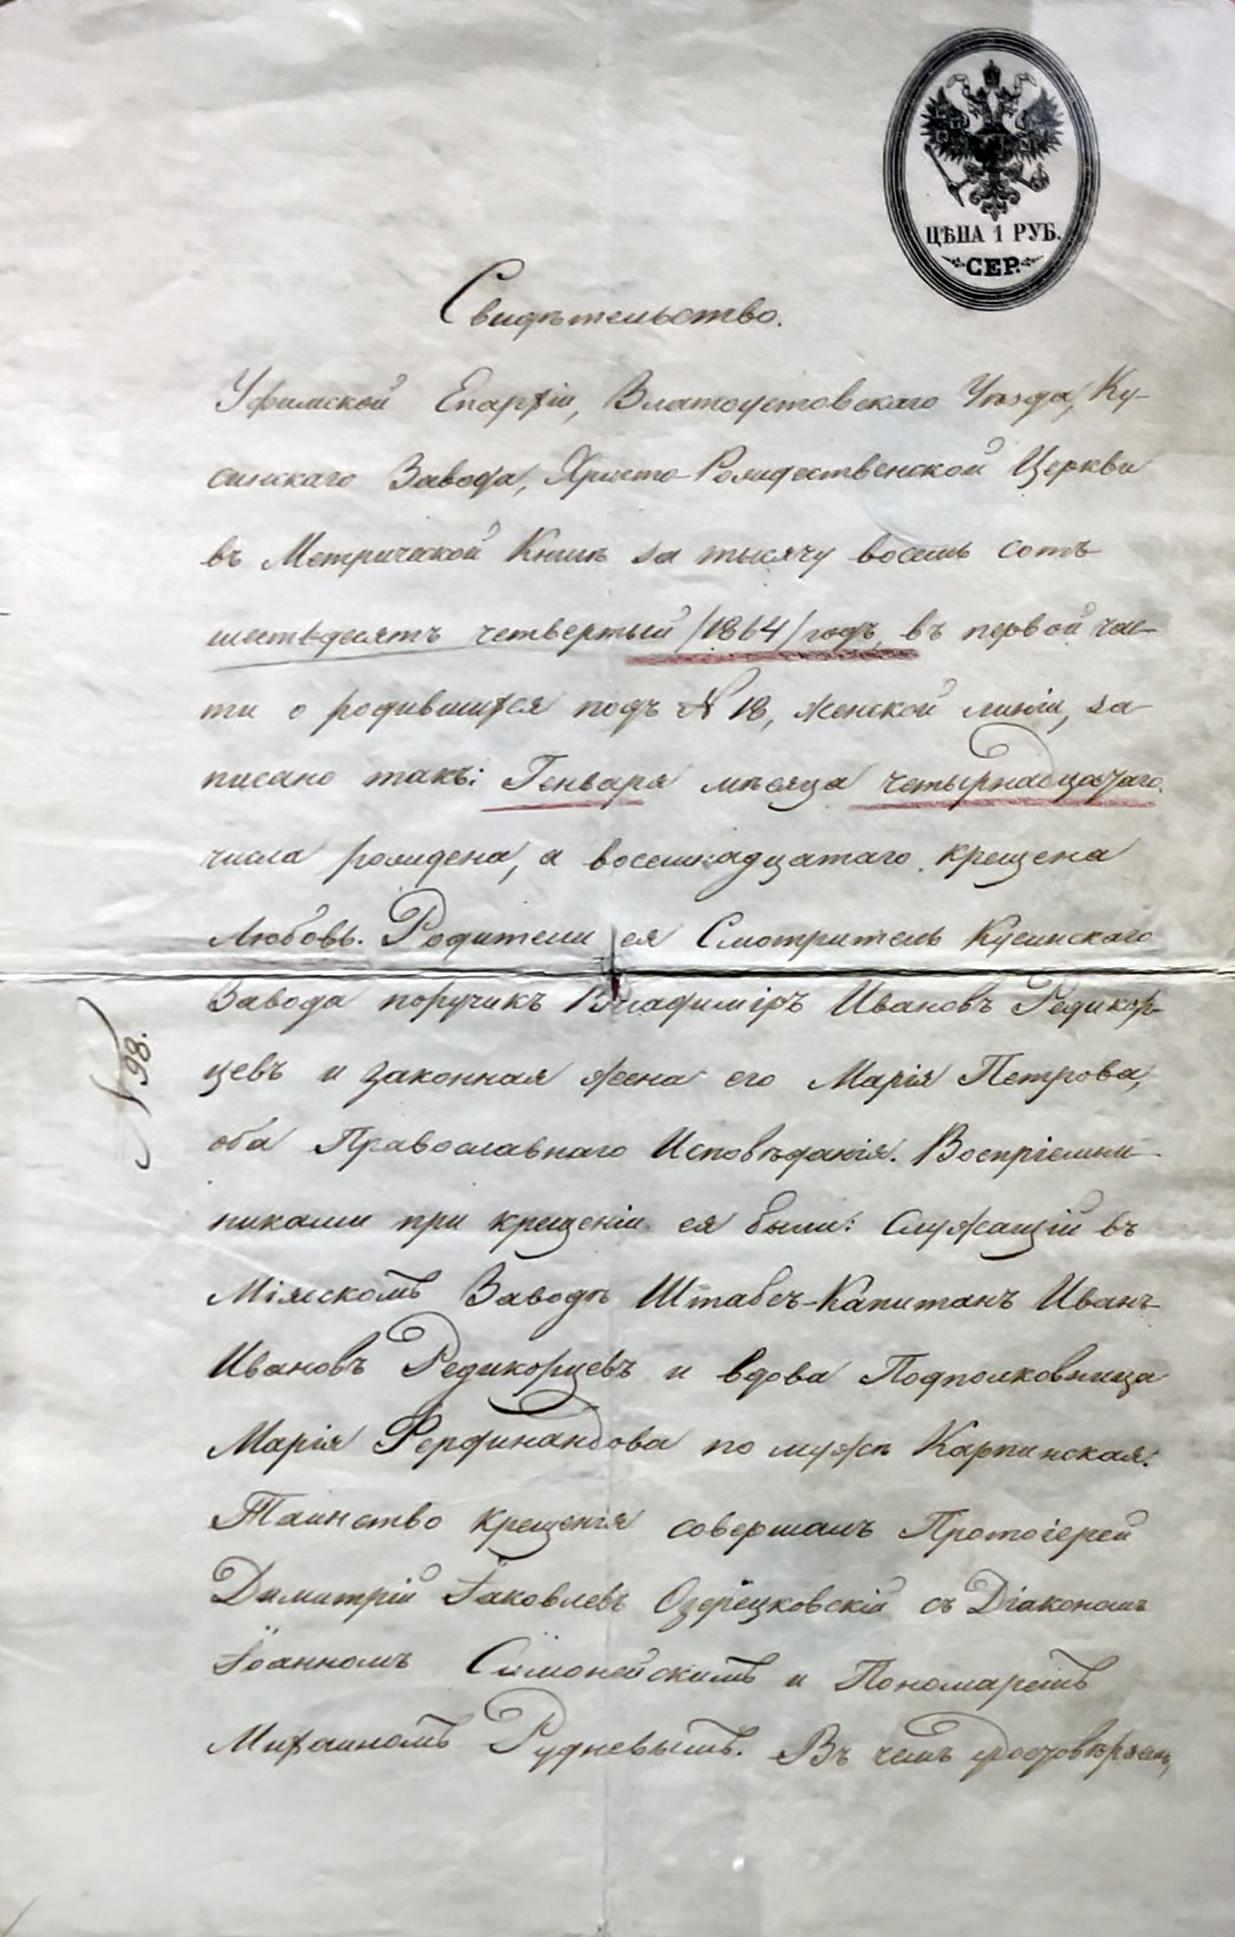 ЦѢНА 1 РУБ.
СЕР.
Свидѣтельство.
Уфимской Епархіи, Златоустовскаго Уѣзда, Ку-
синскаго Завода, Христо-Рождественской Церкви
въ Метрической Книгѣ за тысячу восемь сотъ
шестьдесятъ четвертый /1864/ годъ, въ первой час-
ти о родившихся подъ № 18, женской линіи, за-
писано такъ: Генваря мѣсяца четырнадцатаго
числа рождена, а восемнадцатаго крещена
Любовь. Родители ея Смотритель Кусинскаго
Завода поручикъ Владиміръ Ивановъ Редикор-
цевъ и законная жена его Марія Петрова,
оба Православнаго Исповѣданія. Воспріемни-
никами при крещеніи ея были: Служащій въ
Міясскомъ Заводѣ Штабсъ-Капитанъ Иванъ
Ивановъ Редикорцевъ и вдова Подполковница
Марія Фердинандова по мужѣ Карпинская.
Таинство крещенія совершалъ Протоіерей
Димитрій Іаковлевъ Озерецковскій съ Діакономъ
Іоанномъ Симонейскимъ и Пономаремъ
Михаиломъ Рудневымъ. Въ чемъ удостовѣряемъ
№ 98.